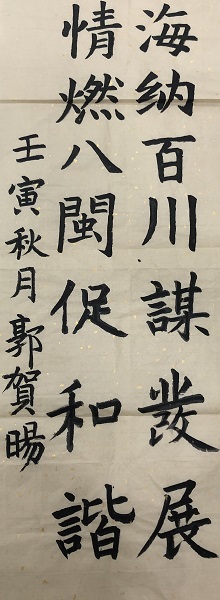 海纳百川謀發展
情燃八閩促和諧
壬寅秋月郭賀暘